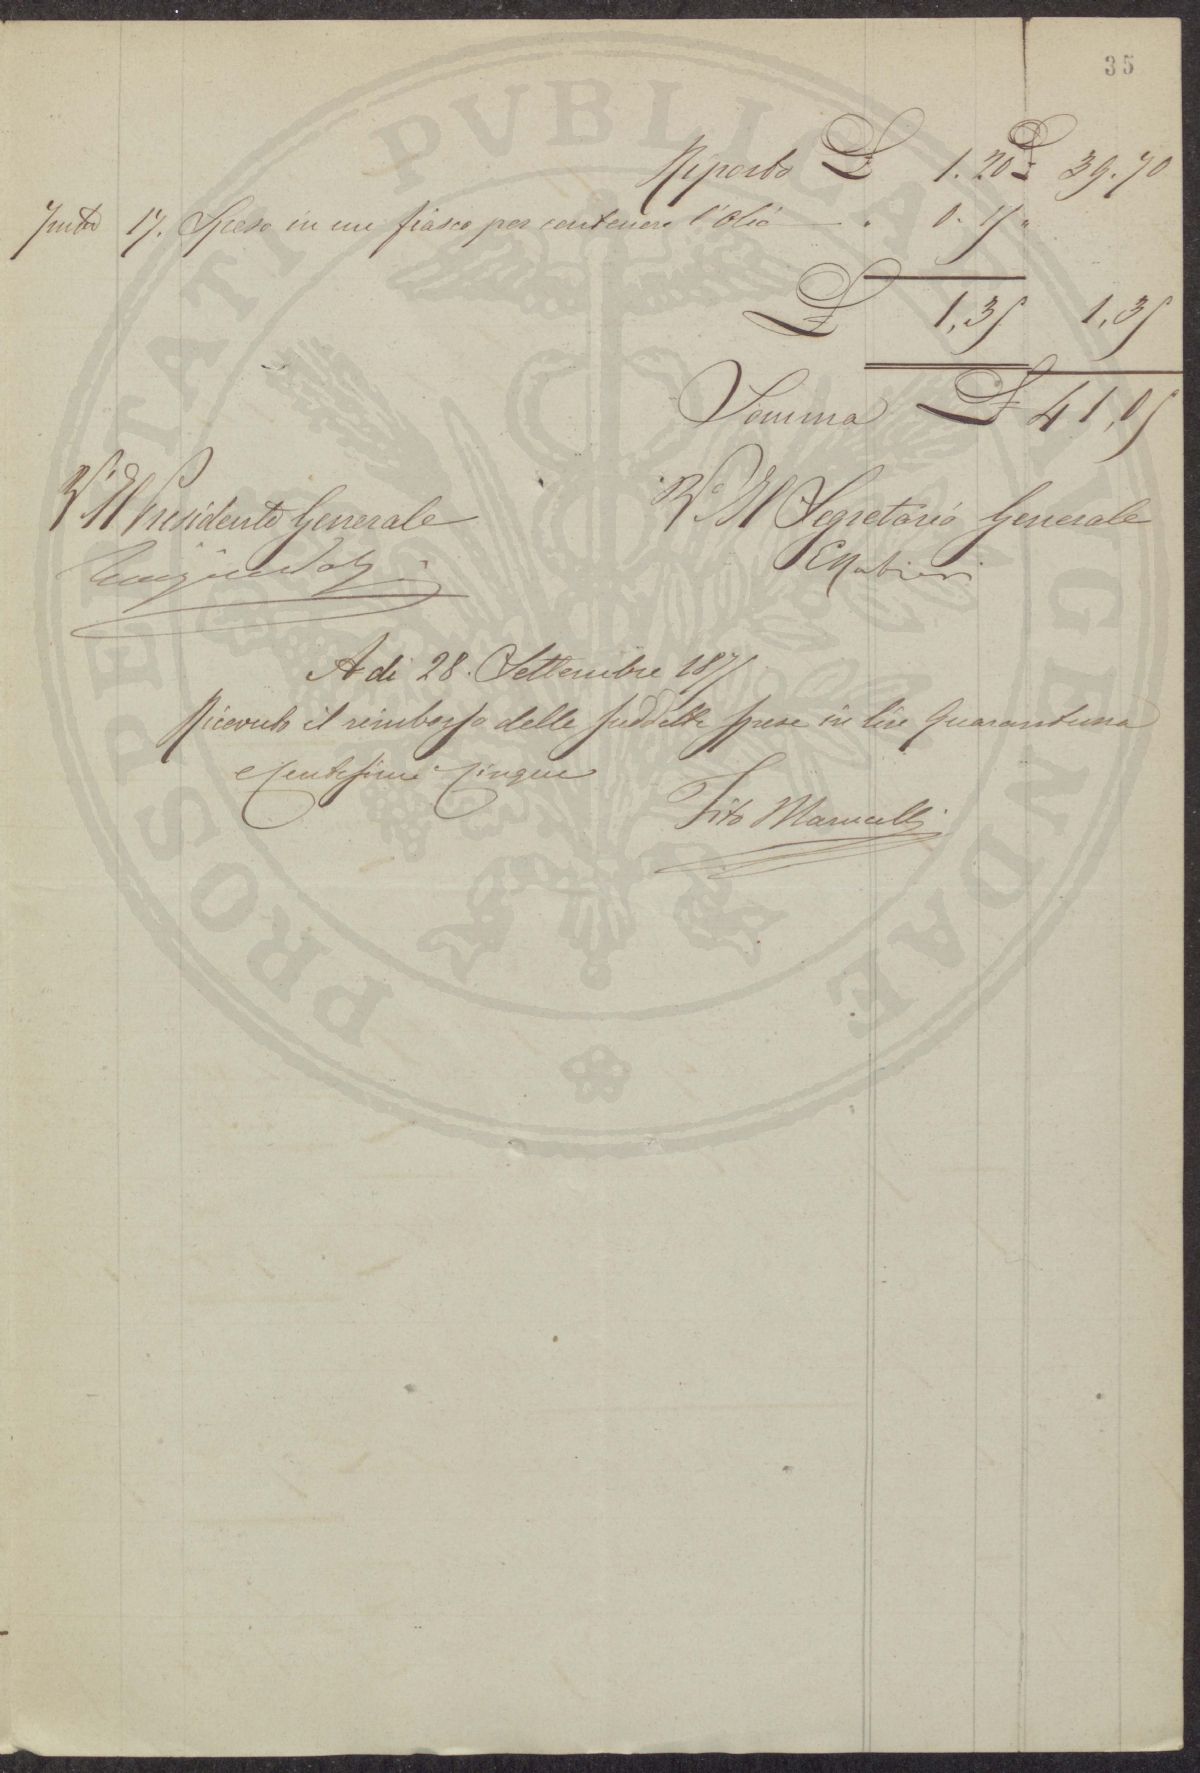 35
Riporto £ 1.20 £ 39.70
17. Speso in un fiasco per contenere l'Olio " 0.15 "
£ 1,35 1,35
Somma £ 41,05
V° Il Presidente Generale
V° Il Segretario Generale
A di 28. Settembre 1875
Ricevuto il rimborso delle suddette spese in lire Quarantuna
e Centesimi Cinque
Tito Marucelli
PROSPERITATI PVBLICAE AVGENDAE